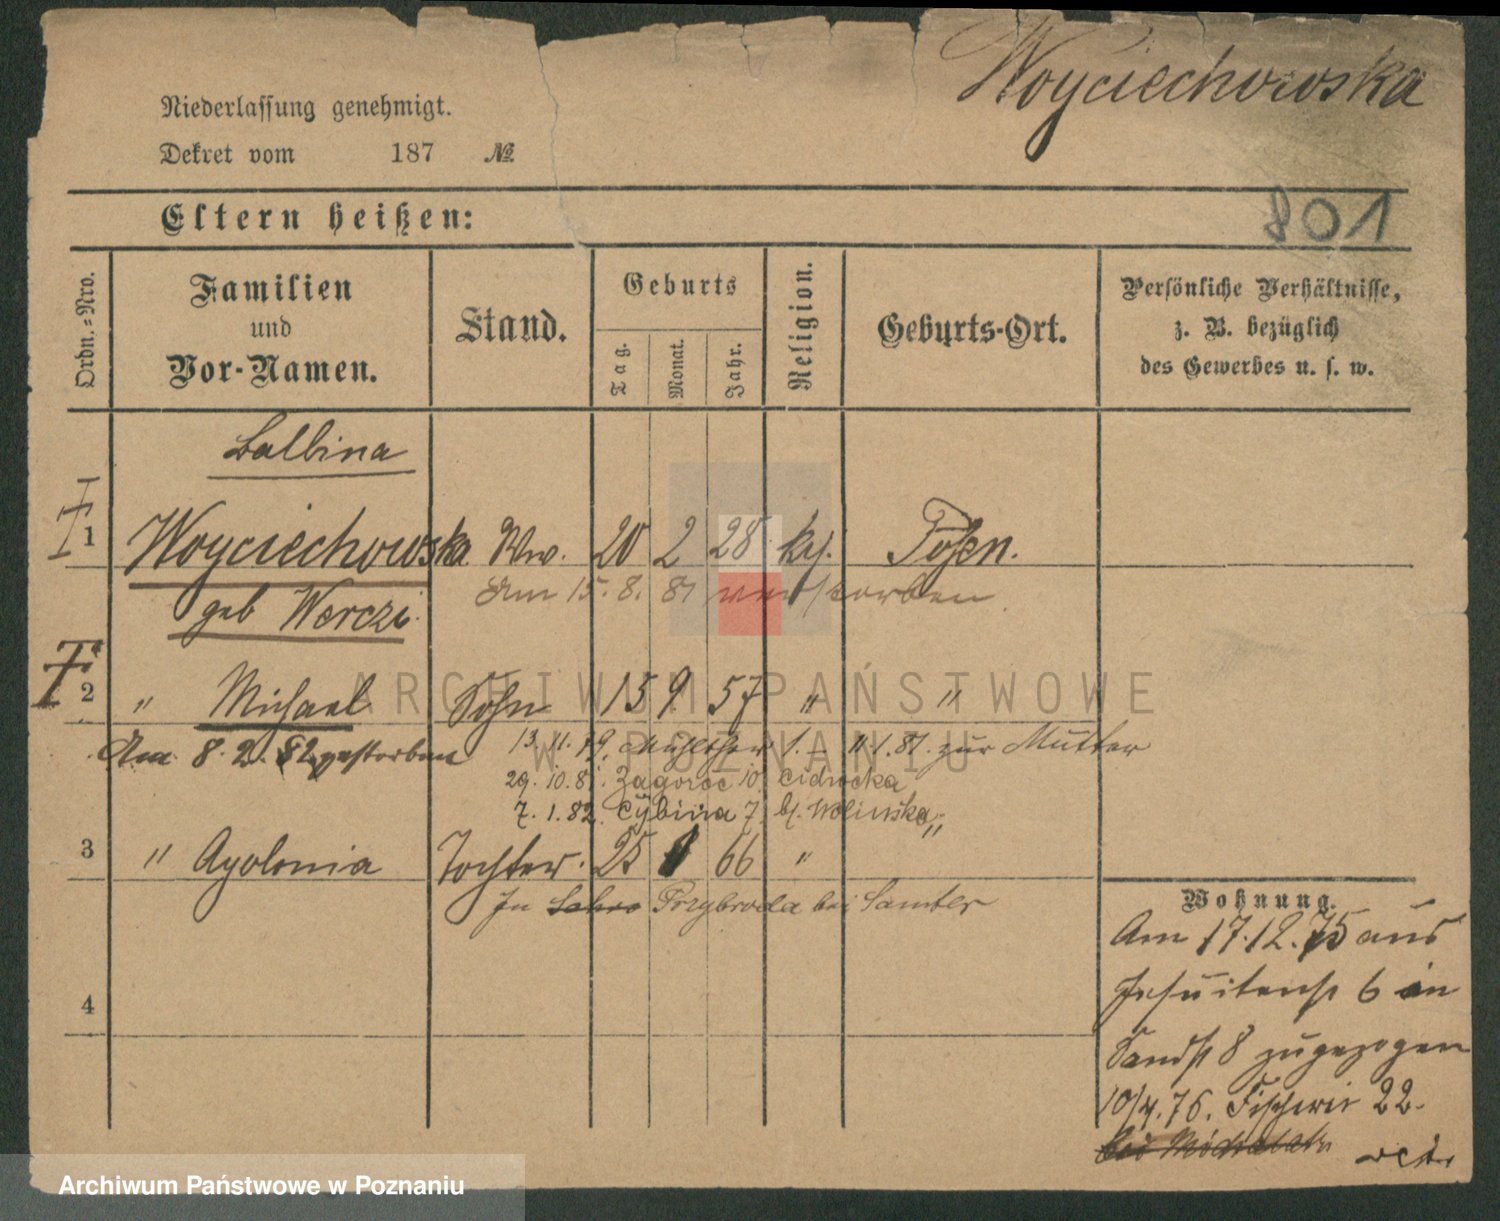 Woyciechowska
Niederlassung genehmigt.
Dekret vom 187 №
801
Eltern heißen:
Ordn.=Nro.
Familien
und
Vor-Namen.
Stand.
Geburts
Tag.
Monat.
Jahr.
Religion.
Geburts-Ort.
Persönliche Verhältnisse,
z. B. bezüglich
des Gewerbes u. s. w.
Balbina
1 Woyciechowska Ww. 20 2 28 kf. Posen.
Am 15. 8. 81 verstorben
geb Werczi
2 " Michael Sohn 15 9 57 " "
Am 8. 2. 82 gestorben
13. 11. 79. 1. 81. zur Mutter
29. 10. 81. Zagorze 10
7. 1. 82. Cybina 7 bf. Wolinska
3 " Apolonia Tochter. 25 66 " "
In Przybroda bei Samter
4
Wohnung.
Am 17.12.75 aus
Jesuitenst 6 in
Sandst 8 zugezogen
10/4.76. Fischerei 22.
ARCHIWUM PAŃSTWOWE
W POZNANIU
Archiwum Państwowe w Poznaniu